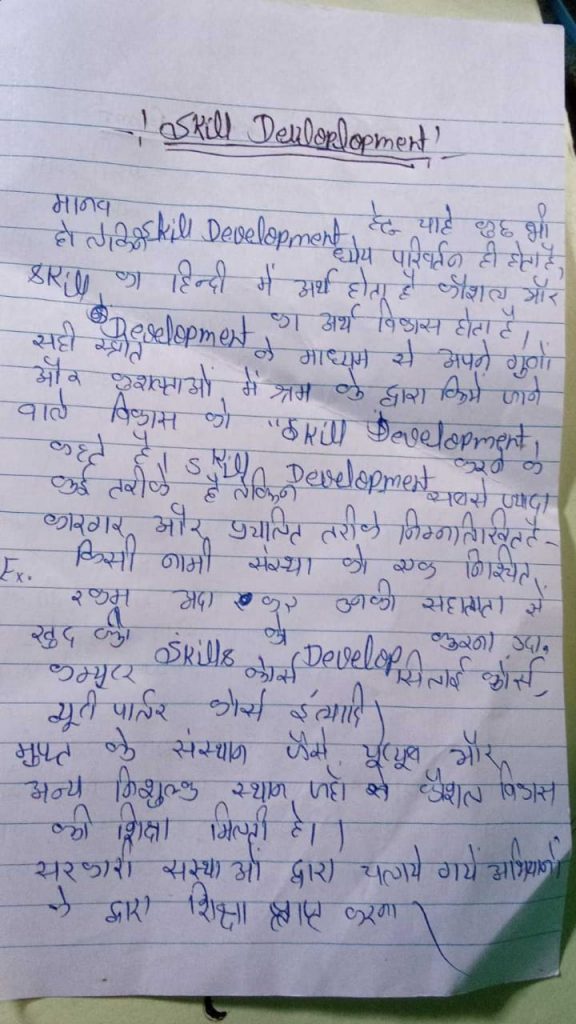 ! Skill Devloplopment !
मानव हेतु चाहे कुछ भी
हो लेकिन Skill Development ध्येय परिवर्तन ही होता है,
Skill का हिन्दी में अर्थ होता है कौशल और
Development का अर्थ विकास होता है।
सही स्त्रोत के माध्यम से अपने गुणों
और कुशलताओं में श्रम के द्वारा किये जाने
वाले विकास को "Skill Development"
कहते है। Skill Development करने के
कई तरीके है लेकिन सबसे ज्यादा
कारगर और प्रचलित तरीके निम्नलिखित है -
Ex. किसी नामी संस्था को एक निश्चित
रकम अदा कर उनकी सहायता से
खुद की Skills को Develop करना उदा.
कम्प्युटर कोर्स सिलाई कोर्स,
ब्यूटी पार्लर कोर्स इत्यादि।
मुफ्त के संस्थान जैसे यूट्यूब और
अन्य निशुल्क स्थान जहाँ से कौशल विकास
की शिक्षा मिलती है।।
सरकारी संस्थाओं द्वारा चलाये गये अभियानों
के द्वारा शिक्षा प्राप्त करना।